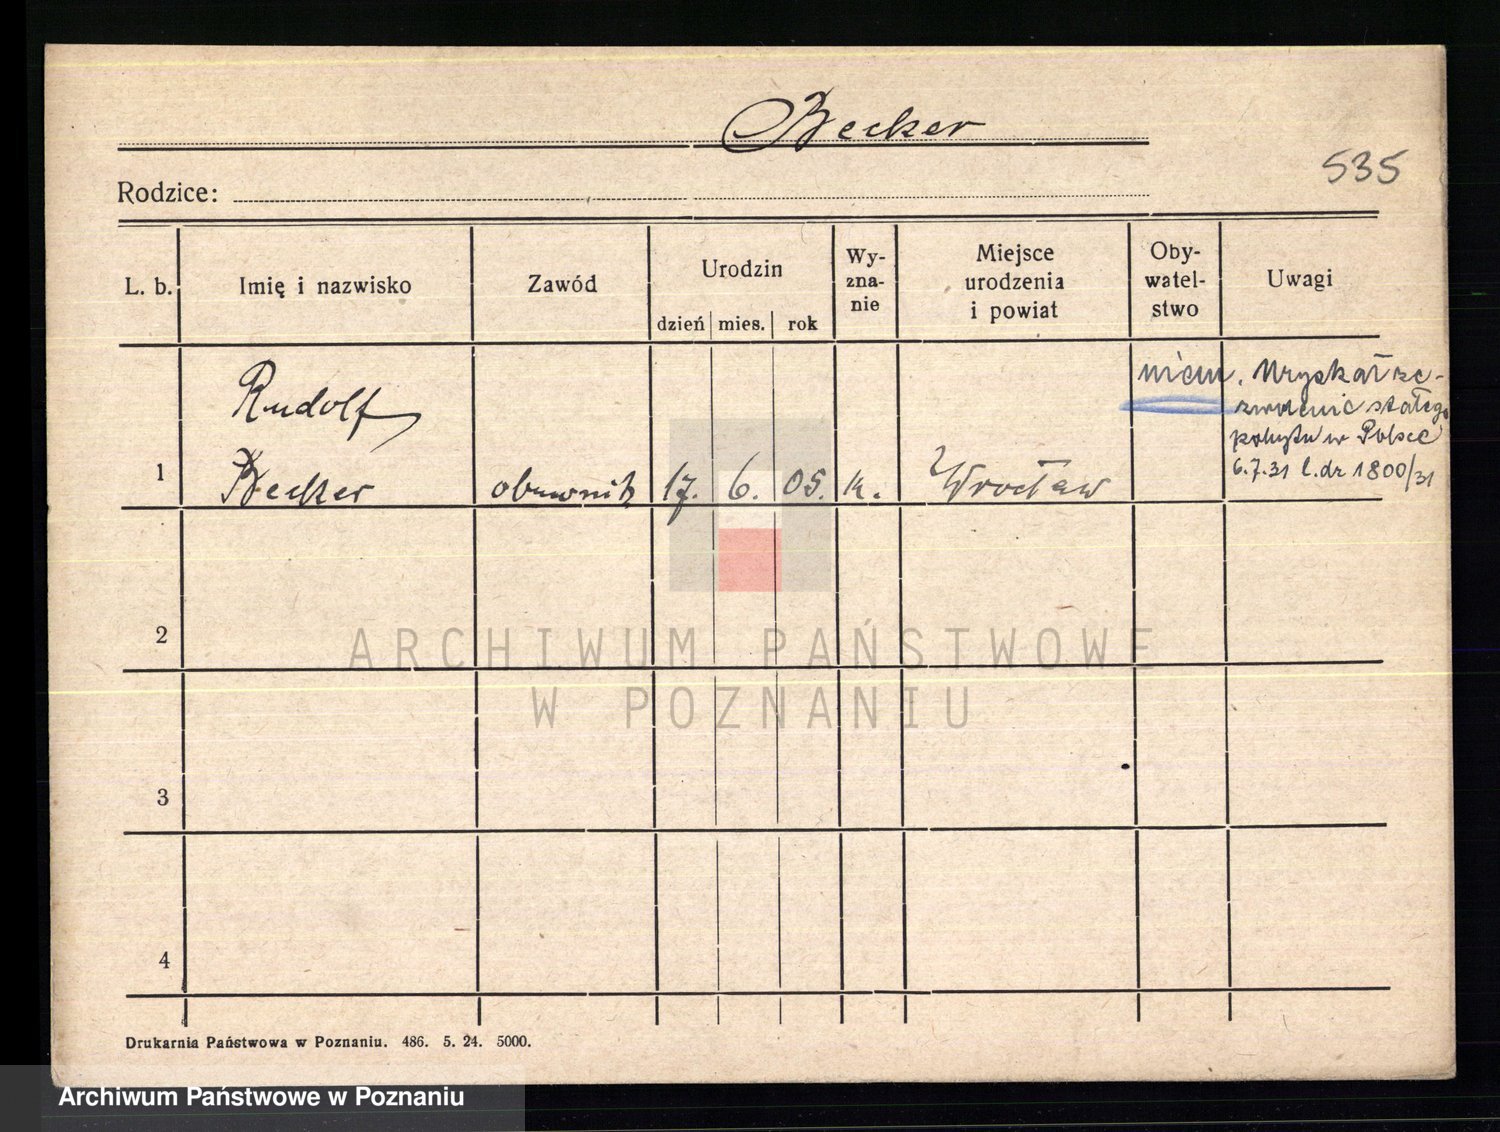 Becker
535
Rodzice:
L. b. Imię i nazwisko Zawód Urodzin dzień mies. rok Wy-zna-nie Miejsce urodzenia i powiat Oby-watel-stwo Uwagi
1 Rudolf Becker obuwnik 17. 6. 05. k. Wrocław niem.
Uzyskał ze-
zwolenie stałego
pobytu w Polsce
6.7.31 l.dz 1800/31
2
3
4
ARCHIWUM PAŃSTWOWE
W POZNANIU
Drukarnia Państwowa w Poznaniu. 486. 5. 24. 5000.
Archiwum Państwowe w Poznaniu